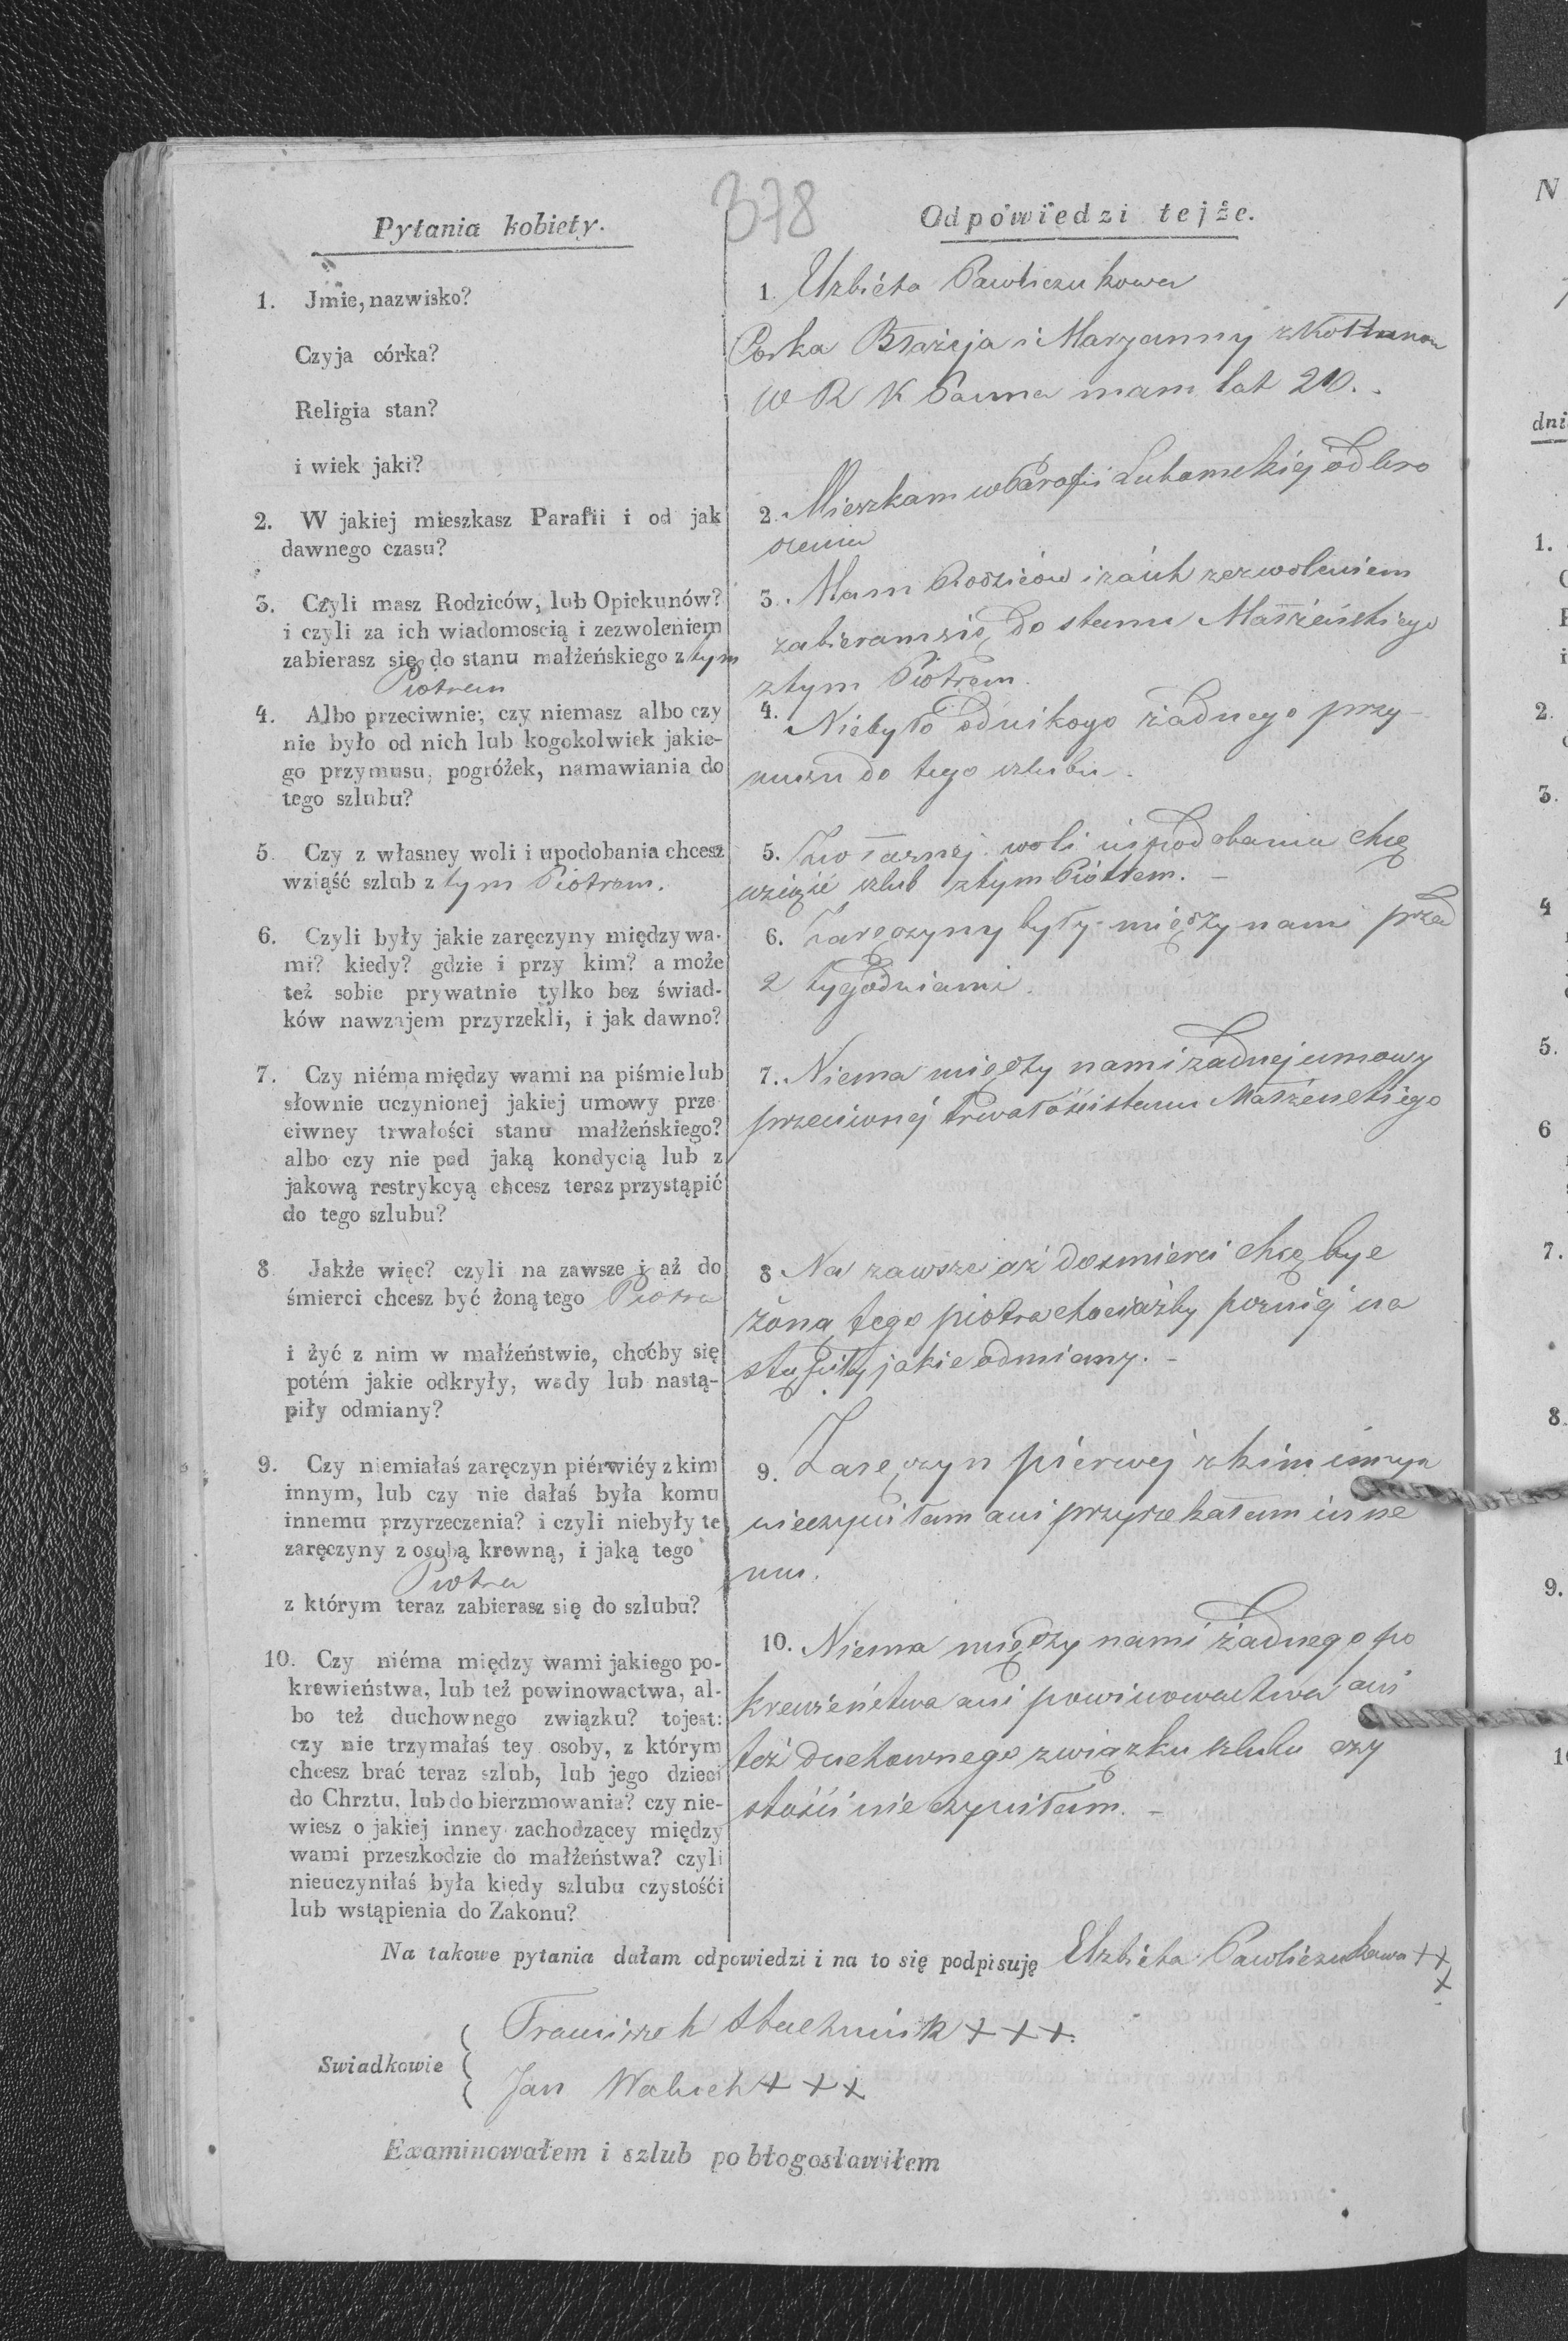 378
Pytania kobiety.
1. Jmie, nazwisko?
Czyja córka?
Religia stan?
i wiek jaki?
2. W jakiej mieszkasz Parafii i od jak
dawnego czasu?
3. Czyli masz Rodziców, lub Opiekunów?
i czyli za ich wiadomoscią i zezwoleniem
zabierasz się do stanu małżeńskiego z tym
Piotrem
4. Albo przeciwnie; czy niemasz albo czy
nie było od nich lub kogokolwiek jakie-
go przymusu, pogróżek, namawiania do
tego szlubu?
5. Czy z własney woli i upodobania chcesz
wziąść szlub z tym Piotrem.
6. Czyli były jakie zaręczyny między wa-
mi? kiedy? gdzie i przy kim? a może
też sobie prywatnie tylko bez świad-
ków nawzajem przyrzekli, i jak dawno?
7. Czy niéma między wami na piśmie lub
słownie uczynionej jakiej umowy prze
ciwney trwałości stanu małżeńskiego?
albo czy nie pod jaką kondycią lub z
jakową restrykcyą chcesz teraz przystąpić
do tego szlubu?
8 Jakże więc? czyli na zawsze i aż do
śmierci chcesz być żoną tego Piotra
i żyć z nim w małżeństwie, choćby się
potém jakie odkryły, wady lub nastą-
piły odmiany?
9. Czy niemiałaś zaręczyn piérwiéy z kim
innym, lub czy nie dałaś była komu
innemu przyrzeczenia? i czyli niebyły te
zaręczyny z osobą krewną, i jaką tego
Piotra
z którym teraz zabierasz się do szlubu?
10. Czy niéma między wami jakiego po-
krewieństwa, lub też powinowactwa, al-
bo też duchownego związku? tojest:
czy nie trzymałaś tey osoby, z którym
chcesz brać teraz szlub, lub jego dzieci
do Chrztu, lub do bierzmowania? czy nie-
wiesz o jakiej inney zachodzącey między
wami przeszkodzie do małżeństwa? czyli
nieuczyniłaś była kiedy szlubu czystośći
lub wstąpienia do Zakonu?
Odpowiedzi tejże.
1. Elzbiéta Pawliczukowa
Corka Błażeja i Maryanny z
W R K Panna mam lat 20.
2. Mieszkam w Parafii od Uro
dzenia
3. Mam Rodziców i zaich zezwoleniem
zabieramsię do stanu Małżeńskiego
ztym Piotrem.
4. Niebyło odnikogo żadnego przy-
musu do tego szlubu.
5. Zwłasnéj woli iupodobania chcę
wziąść szlub ztym Piotrem. -
6. Zaręczyny były między nami przed
2 tygodniami.
7. Niema między nami żadnej umowy
przeciwnéj trwałości stanu Małżenskiego
8 Na zawsze aż dosmierci chcę bye
żoną tego piotra chociażby poźniéj na
stąpiły jakie odmiany. -
9. Zaręczyn piérwéj zkim innym
nieczyniłam ani przyrzekałam inne
mu.
10. Niema między nami żadnego po
krewieństwa ani powinowactwa ani
też duchownego związku szlubu czy
stości nie czyniłam. -
Na takowe pytania dałam odpowiedzi i na to się podpisuję Elzbiéta Pawliczukowa ++
+
Swiadkowie
Franciszek Stachniuk +++.
Jan +++
Examinowałem i szlub pobłogosławiłem
N
dni
1.
2.
3.
4
5.
6
7.
8.
9.